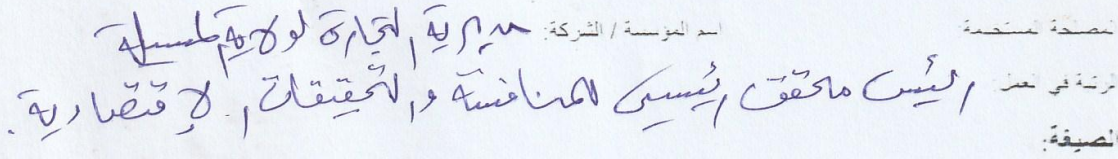 المصلحة المستخدمة: اسم المؤسسة / الشركة: مديرية التجارة لولاية المسيلة
الرتبة في العمل: رئيس محقق رئيسي للمنافسة والتحقيقات الإقتصادية.
الصيغة: